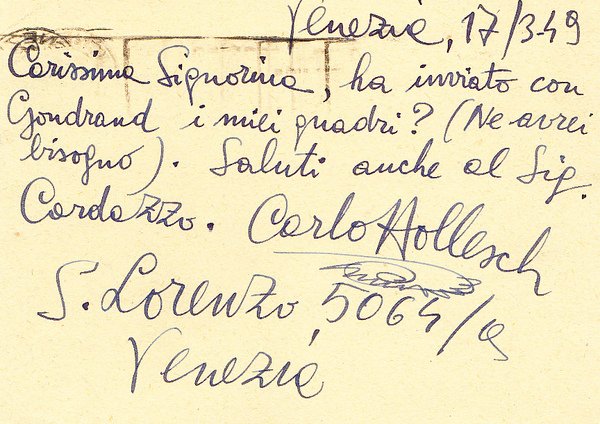 Venezia, 17/3 49
Carissima Signorina, ha inviato con
Gondrand i miei quadri? (Ne avrei
bisogno). Saluti anche al Sig.
Cardazzo. Carlo Hollesch
S. Lorenzo, 5064/a
Venezia